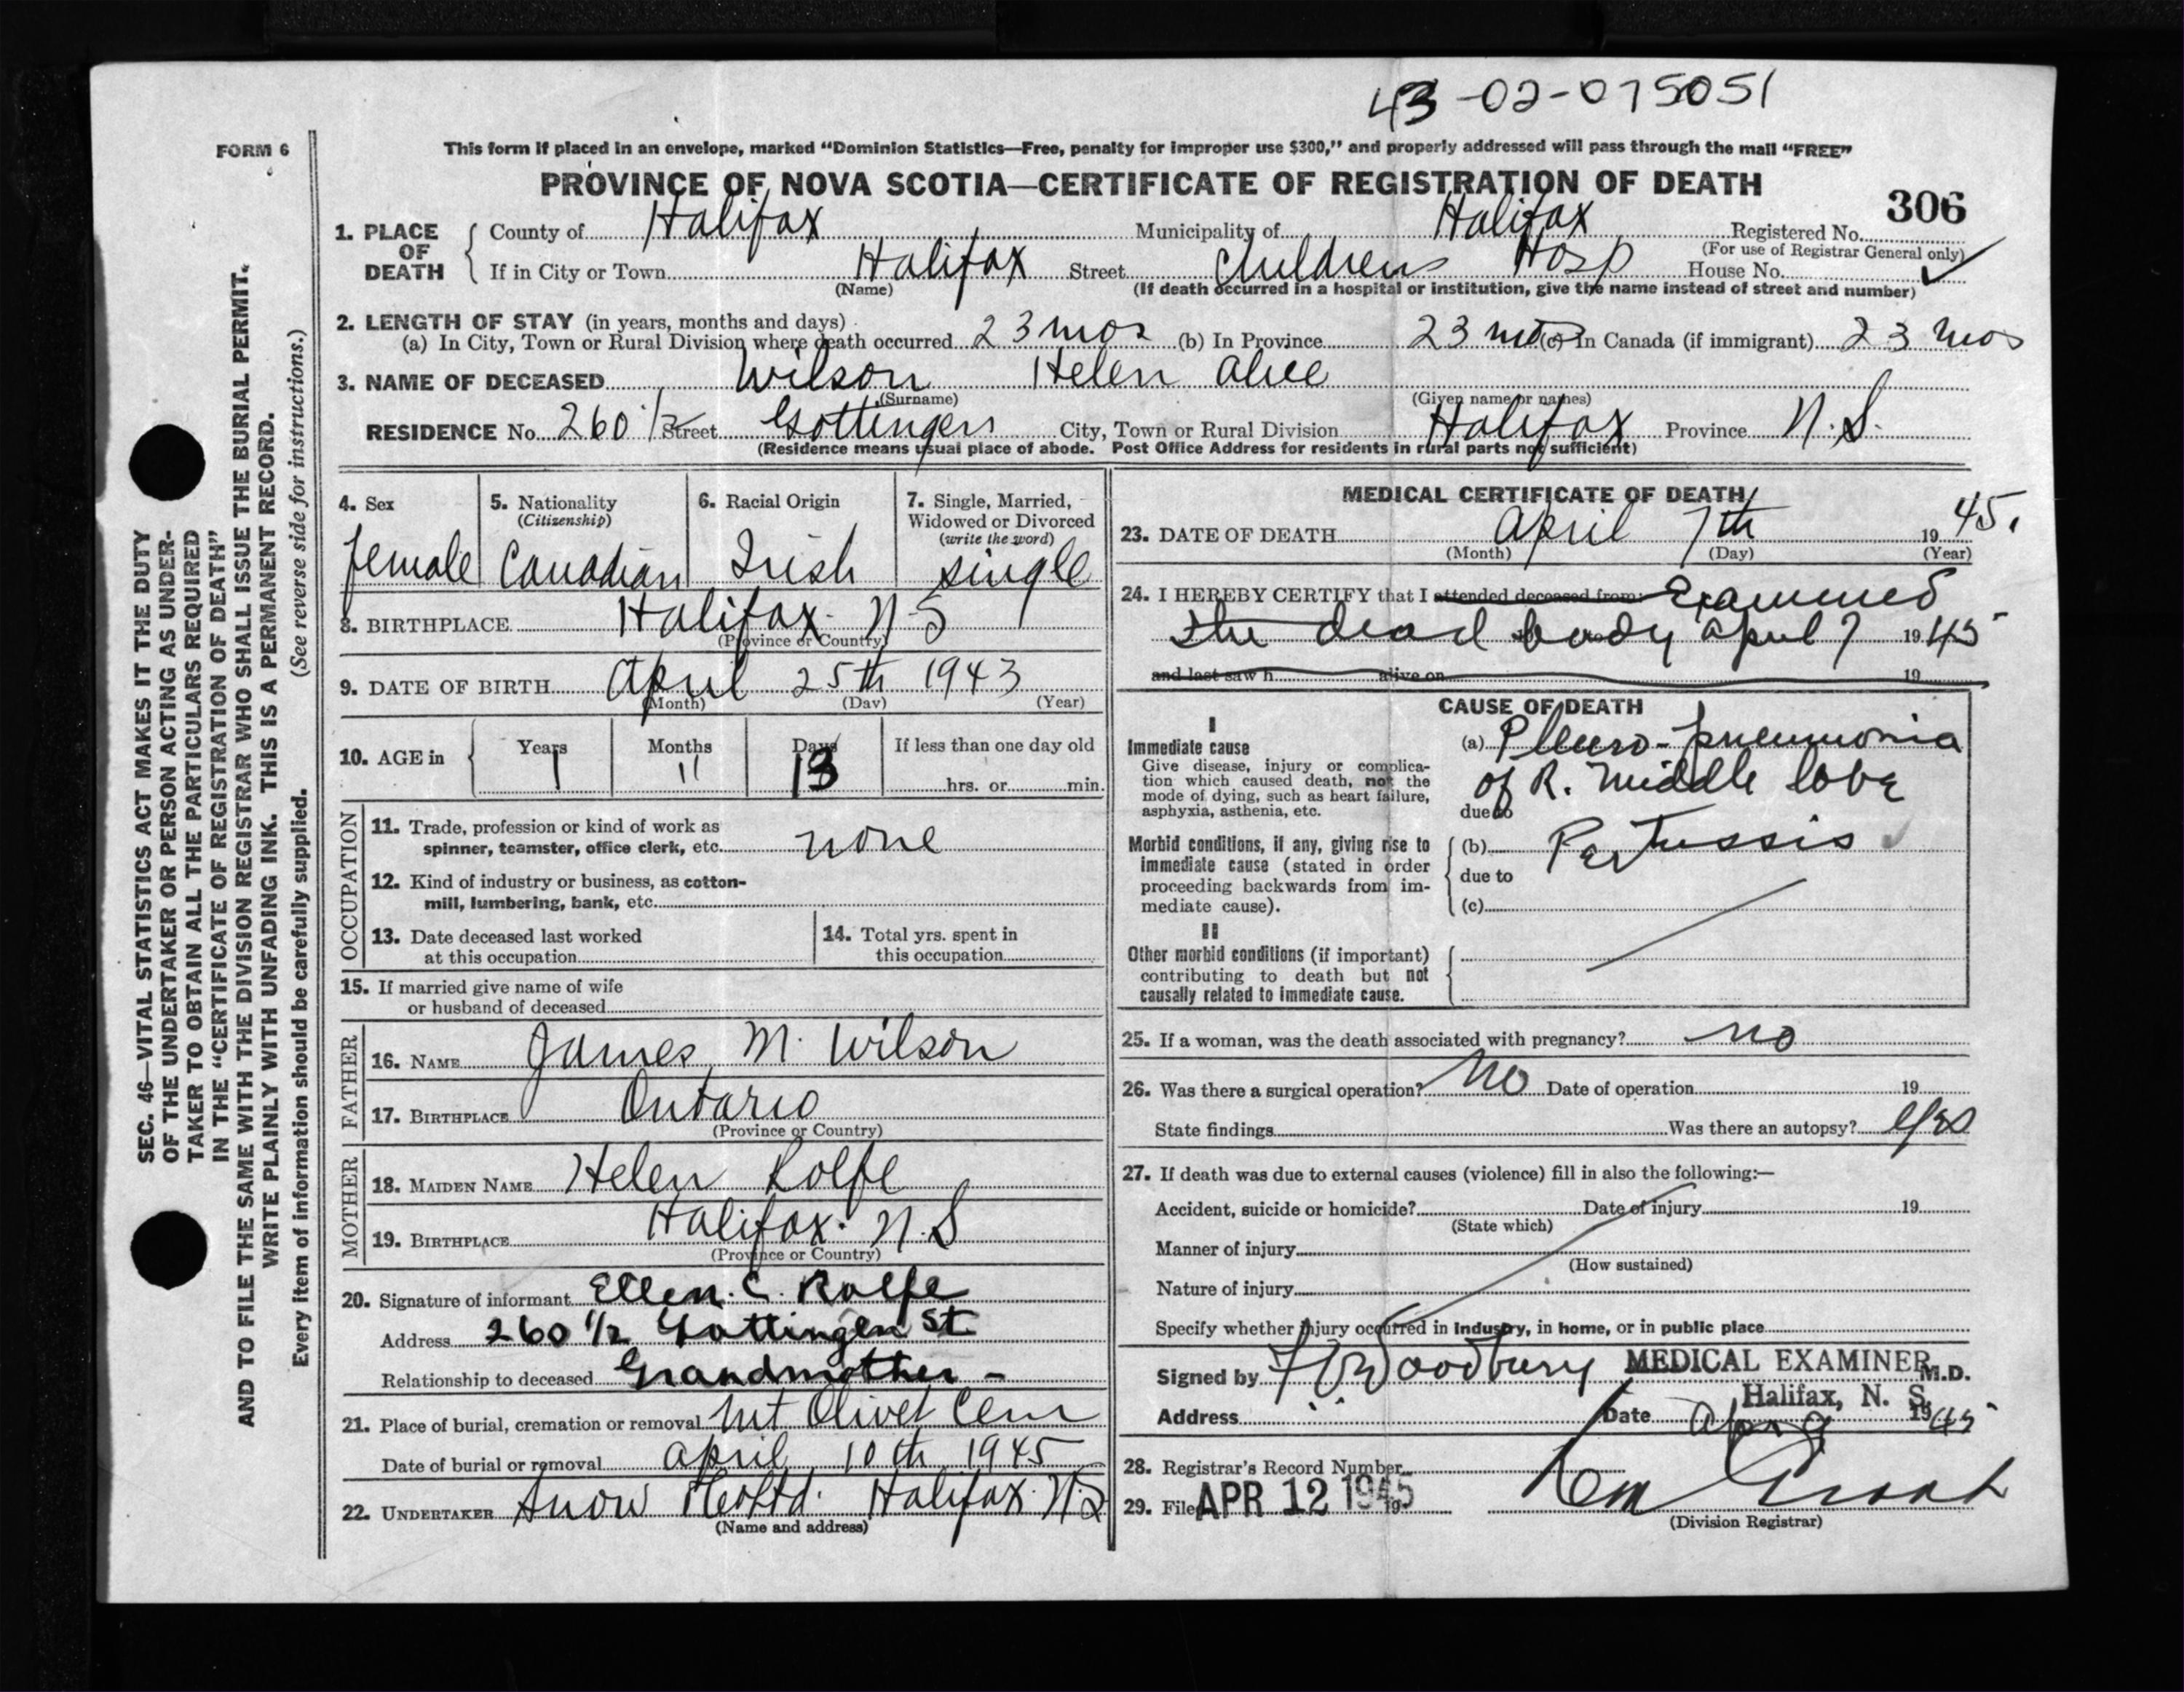 43-02-075051
FORM 6
This form if placed in an envelope, marked “Dominion Statistics—Free, penalty for improper use $300,” and properly addressed will pass through the mail “FREE”
PROVINCE OF NOVA SCOTIA—CERTIFICATE OF REGISTRATION OF DEATH
306
1. PLACE OF DEATH { County of Halifax Municipality of Halifax Registered No.
(For use of Registrar General only)
If in City or Town Halifax Street Childrens Hosp House No. ✓
(Name) (If death occurred in a hospital or institution, give the name instead of street and number)
2. LENGTH OF STAY (in years, months and days)
(a) In City, Town or Rural Division where death occurred 23 mos (b) In Province 23 mos (c) In Canada (if immigrant) 23 mos
3. NAME OF DECEASED Wilson Helen Alice
(Surname) (Given name or names)
RESIDENCE No. 260 1/2 Street Gottingen City, Town or Rural Division Halifax Province N.S.
(Residence means usual place of abode. Post Office Address for residents in rural parts not sufficient)
4. Sex
female
5. Nationality
(Citizenship)
Canadian
6. Racial Origin
Irish
7. Single, Married,
Widowed or Divorced
(write the word)
single
8. BIRTHPLACE Halifax. N S
(Province or Country)
9. DATE OF BIRTH April 25th 1943
(Month) (Day) (Year)
10. AGE in { Years Months Days If less than one day old
1 11 13 hrs. or min.
OCCUPATION
11. Trade, profession or kind of work as
spinner, teamster, office clerk, etc. none
12. Kind of industry or business, as cotton-
mill, lumbering, bank, etc.
13. Date deceased last worked
at this occupation
14. Total yrs. spent in
this occupation
15. If married give name of wife
or husband of deceased
FATHER
16. NAME James M. Wilson
17. BIRTHPLACE Ontario
(Province or Country)
MOTHER
18. MAIDEN NAME Helen Rolfe
19. BIRTHPLACE Halifax. N.S
(Province or Country)
20. Signature of informant Ellen. C. Rolfe
Address 260 1/2 Gottingen St
Relationship to deceased Grandmother -
21. Place of burial, cremation or removal Mt Olivet Cem
Date of burial or removal April 10th 1945
22. UNDERTAKER Snow & Co Ltd. Halifax N.S
(Name and address)
MEDICAL CERTIFICATE OF DEATH
23. DATE OF DEATH April 7th 1945.
(Month) (Day) (Year)
24. I HEREBY CERTIFY that I attended deceased from: Examined
the dead body April 7 1945
and last saw h alive on 19
CAUSE OF DEATH
I
Immediate cause
Give disease, injury or complica-
tion which caused death, not the
mode of dying, such as heart failure,
asphyxia, asthenia, etc.
(a) Pleuro-pneumonia
of R. middle lobe
due to
Morbid conditions, if any, giving rise to
immediate cause (stated in order
proceeding backwards from im-
mediate cause).
(b) Pertussis ✓
due to
(c)
II
Other morbid conditions (if important)
contributing to death but not
causally related to immediate cause.
25. If a woman, was the death associated with pregnancy? no
26. Was there a surgical operation? No Date of operation 19
State findings Was there an autopsy? yes
27. If death was due to external causes (violence) fill in also the following:—
Accident, suicide or homicide? Date of injury 19
(State which)
Manner of injury
(How sustained)
Nature of injury
Specify whether injury occurred in industry, in home, or in public place
Signed by Woodbury MEDICAL EXAMINER M.D.
Halifax, N. S.
Address Date Apr 9 1945
28. Registrar's Record Number
29. Filed APR 12 1945 19
(Division Registrar)
SEC. 46—VITAL STATISTICS ACT MAKES IT THE DUTY
OF THE UNDERTAKER OR PERSON ACTING AS UNDER-
TAKER TO OBTAIN ALL THE PARTICULARS REQUIRED
IN THE “CERTIFICATE OF REGISTRATION OF DEATH”
AND TO FILE THE SAME WITH THE DIVISION REGISTRAR WHO SHALL ISSUE THE BURIAL PERMIT.
WRITE PLAINLY WITH UNFADING INK. THIS IS A PERMANENT RECORD.
Every item of information should be carefully supplied. (See reverse side for instructions.)